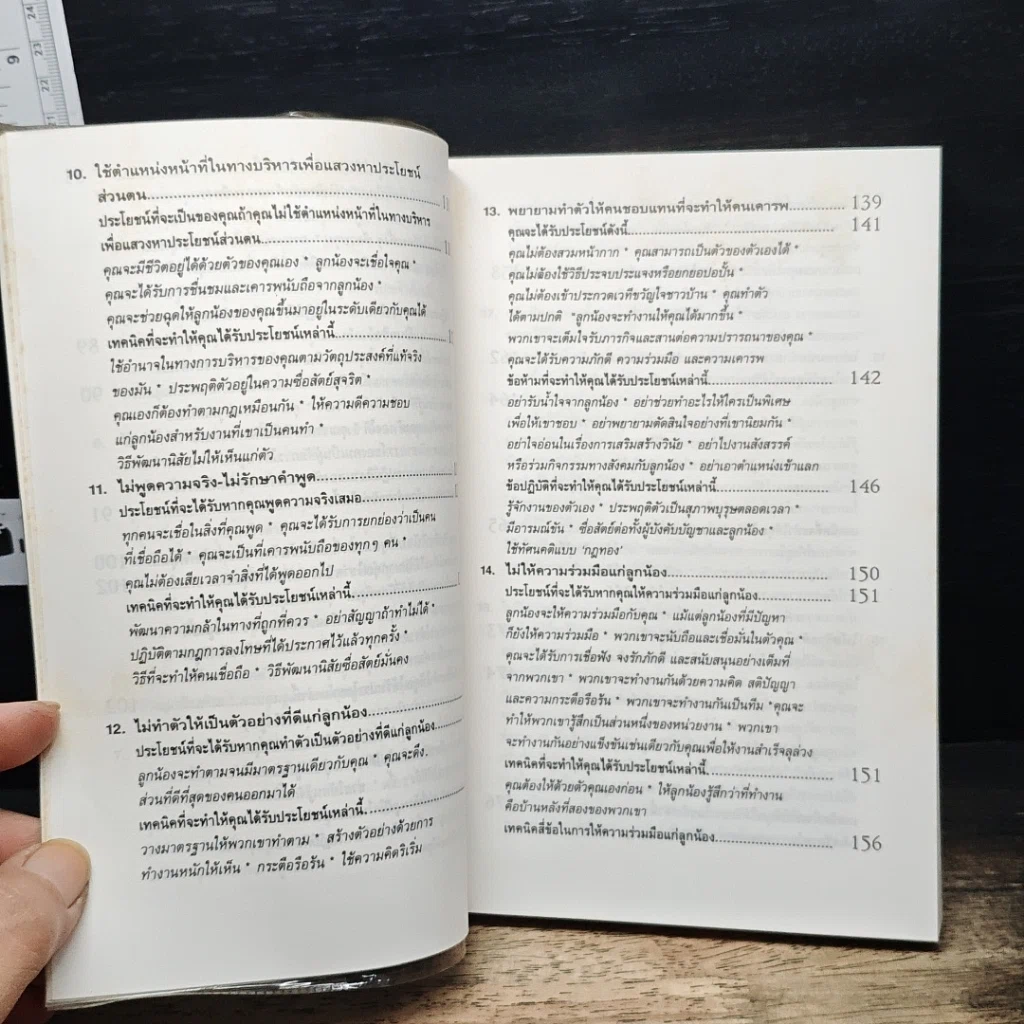 10. ใช้ตำแหน่งหน้าที่ในทางบริหารเพื่อแสวงหาประโยชน์
ส่วนตน
ประโยชน์ที่จะเป็นของคุณถ้าคุณไม่ใช้ตำแหน่งหน้าที่ในทางบริหาร
เพื่อแสวงหาประโยชน์ส่วนตน
คุณจะมีชีวิตอยู่ได้ด้วยตัวของคุณเอง * ลูกน้องจะเชื่อใจคุณ *
คุณจะได้รับการชื่นชมและเคารพนับถือจากลูกน้อง *
คุณจะช่วยฉุดให้ลูกน้องของคุณขึ้นมาอยู่ในระดับเดียวกับคุณได้
เทคนิคที่จะทำให้คุณได้รับประโยชน์เหล่านี้
ใช้อำนาจในทางการบริหารของคุณตามวัตถุประสงค์ที่แท้จริง
ของมัน * ประพฤติตัวอยู่ในความซื่อสัตย์สุจริต *
คุณเองก็ต้องทำตามกฎเหมือนกัน * ให้ความดีความชอบ
แก่ลูกน้องสำหรับงานที่เขาเป็นคนทำ *
วิธีพัฒนานิสัยไม่ให้เห็นแก่ตัว
11. ไม่พูดความจริง-ไม่รักษาคำพูด
ประโยชน์ที่จะได้รับหากคุณพูดความจริงเสมอ
ทุกคนจะเชื่อในสิ่งที่คุณพูด * คุณจะได้รับการยกย่องว่าเป็นคน
ที่เชื่อถือได้ * คุณจะเป็นที่เคารพนับถือของทุกๆ คน *
คุณไม่ต้องเสียเวลาจำสิ่งที่ได้พูดออกไป
เทคนิคที่จะทำให้คุณได้รับประโยชน์เหล่านี้
พัฒนาความกล้าในทางที่ถูกที่ควร * อย่าสัญญาถ้าทำไม่ได้ *
ปฏิบัติตามกฎการลงโทษที่ได้ประกาศไว้แล้วทุกครั้ง *
วิธีที่จะทำให้คนเชื่อถือ * วิธีพัฒนานิสัยซื่อสัตย์มั่นคง
12. ไม่ทำตัวให้เป็นตัวอย่างที่ดีแก่ลูกน้อง
ประโยชน์ที่จะได้รับหากคุณทำตัวเป็นตัวอย่างที่ดีแก่ลูกน้อง
ลูกน้องจะทำตามจนมีมาตรฐานเดียวกับคุณ * คุณจะดึง
ส่วนที่ดีที่สุดของคนออกมาได้
เทคนิคที่จะทำให้คุณได้รับประโยชน์เหล่านี้
วางมาตรฐานให้พวกเขาทำตาม * สร้างตัวอย่างด้วยการ
ทำงานหนักให้เห็น * กระตือรือร้น * ใช้ความคิดริเริ่ม
13. พยายามทำตัวให้คนชอบแทนที่จะทำให้คนเคารพ 139
คุณจะได้รับประโยชน์ดังนี้ 141
คุณไม่ต้องสวมหน้ากาก * คุณสามารถเป็นตัวของตัวเองได้ *
คุณไม่ต้องใช้วิธีประจบประแจงหรือยกยอปอปั้น *
คุณไม่ต้องเข้าประกวดเวทีขวัญใจชาวบ้าน * คุณทำตัว
ได้ตามปกติ *ลูกน้องจะทำงานให้คุณได้มากขึ้น *
พวกเขาจะเต็มใจรับภารกิจและสานต่อความปรารถนาของคุณ *
คุณจะได้รับความภักดี ความร่วมมือ และความเคารพ
ข้อห้ามที่จะทำให้คุณได้รับประโยชน์เหล่านี้ 142
อย่ารับน้ำใจจากลูกน้อง * อย่าช่วยทำอะไรให้ใครเป็นพิเศษ
เพื่อให้เขาชอบ * อย่าพยายามตัดสินใจอย่างที่เขานิยมกัน *
อย่าใจอ่อนในเรื่องการเสริมสร้างวินัย * อย่าไปงานสังสรรค์
หรือร่วมกิจกรรมทางสังคมกับลูกน้อง * อย่าเอาตำแหน่งเข้าแลก
ข้อปฏิบัติที่จะทำให้คุณได้รับประโยชน์เหล่านี้ 146
รู้จักงานของตัวเอง * ประพฤติตัวเป็นสุภาพบุรุษตลอดเวลา *
มีอารมณ์ขัน * ซื่อสัตย์ต่อทั้งผู้บังคับบัญชาและลูกน้อง *
ใช้ทัศนคติแบบ 'กฎทอง'
14. ไม่ให้ความร่วมมือแก่ลูกน้อง 150
ประโยชน์ที่จะได้รับหากคุณให้ความร่วมมือแก่ลูกน้อง 151
ลูกน้องจะให้ความร่วมมือกับคุณ * แม้แต่ลูกน้องที่มีปัญหา
ก็ยังให้ความร่วมมือ * พวกเขาจะนับถือและเชื่อมั่นในตัวคุณ *
คุณจะได้รับการเชื่อฟัง จงรักภักดี และสนับสนุนอย่างเต็มที่
จากพวกเขา * พวกเขาจะทำงานกันด้วยความคิด สติปัญญา
และความกระตือรือร้น * พวกเขาจะทำงานกันเป็นทีม *คุณจะ
ทำให้พวกเขารู้สึกเป็นส่วนหนึ่งของหน่วยงาน * พวกเขา
จะทำงานกันอย่างแข็งขันเช่นเดียวกับคุณเพื่อให้งานสำเร็จลุล่วง
เทคนิคที่จะทำให้คุณได้รับประโยชน์เหล่านี้ 151
คุณต้องให้ด้วยตัวคุณเองก่อน * ให้ลูกน้องรู้สึกว่าที่ทำงาน
คือบ้านหลังที่สองของพวกเขา
เทคนิคสี่ข้อในการให้ความร่วมมือแก่ลูกน้อง 156